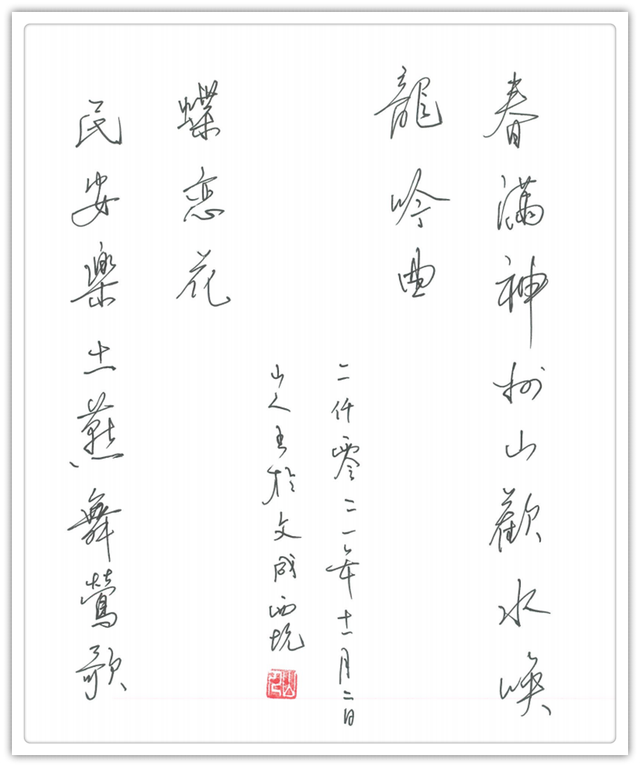 春滿神州山歡水唤
龍吟曲
二仟零二一年十一月二日
山人於文成西坑
蝶恋花
民安樂土燕舞鶯歌